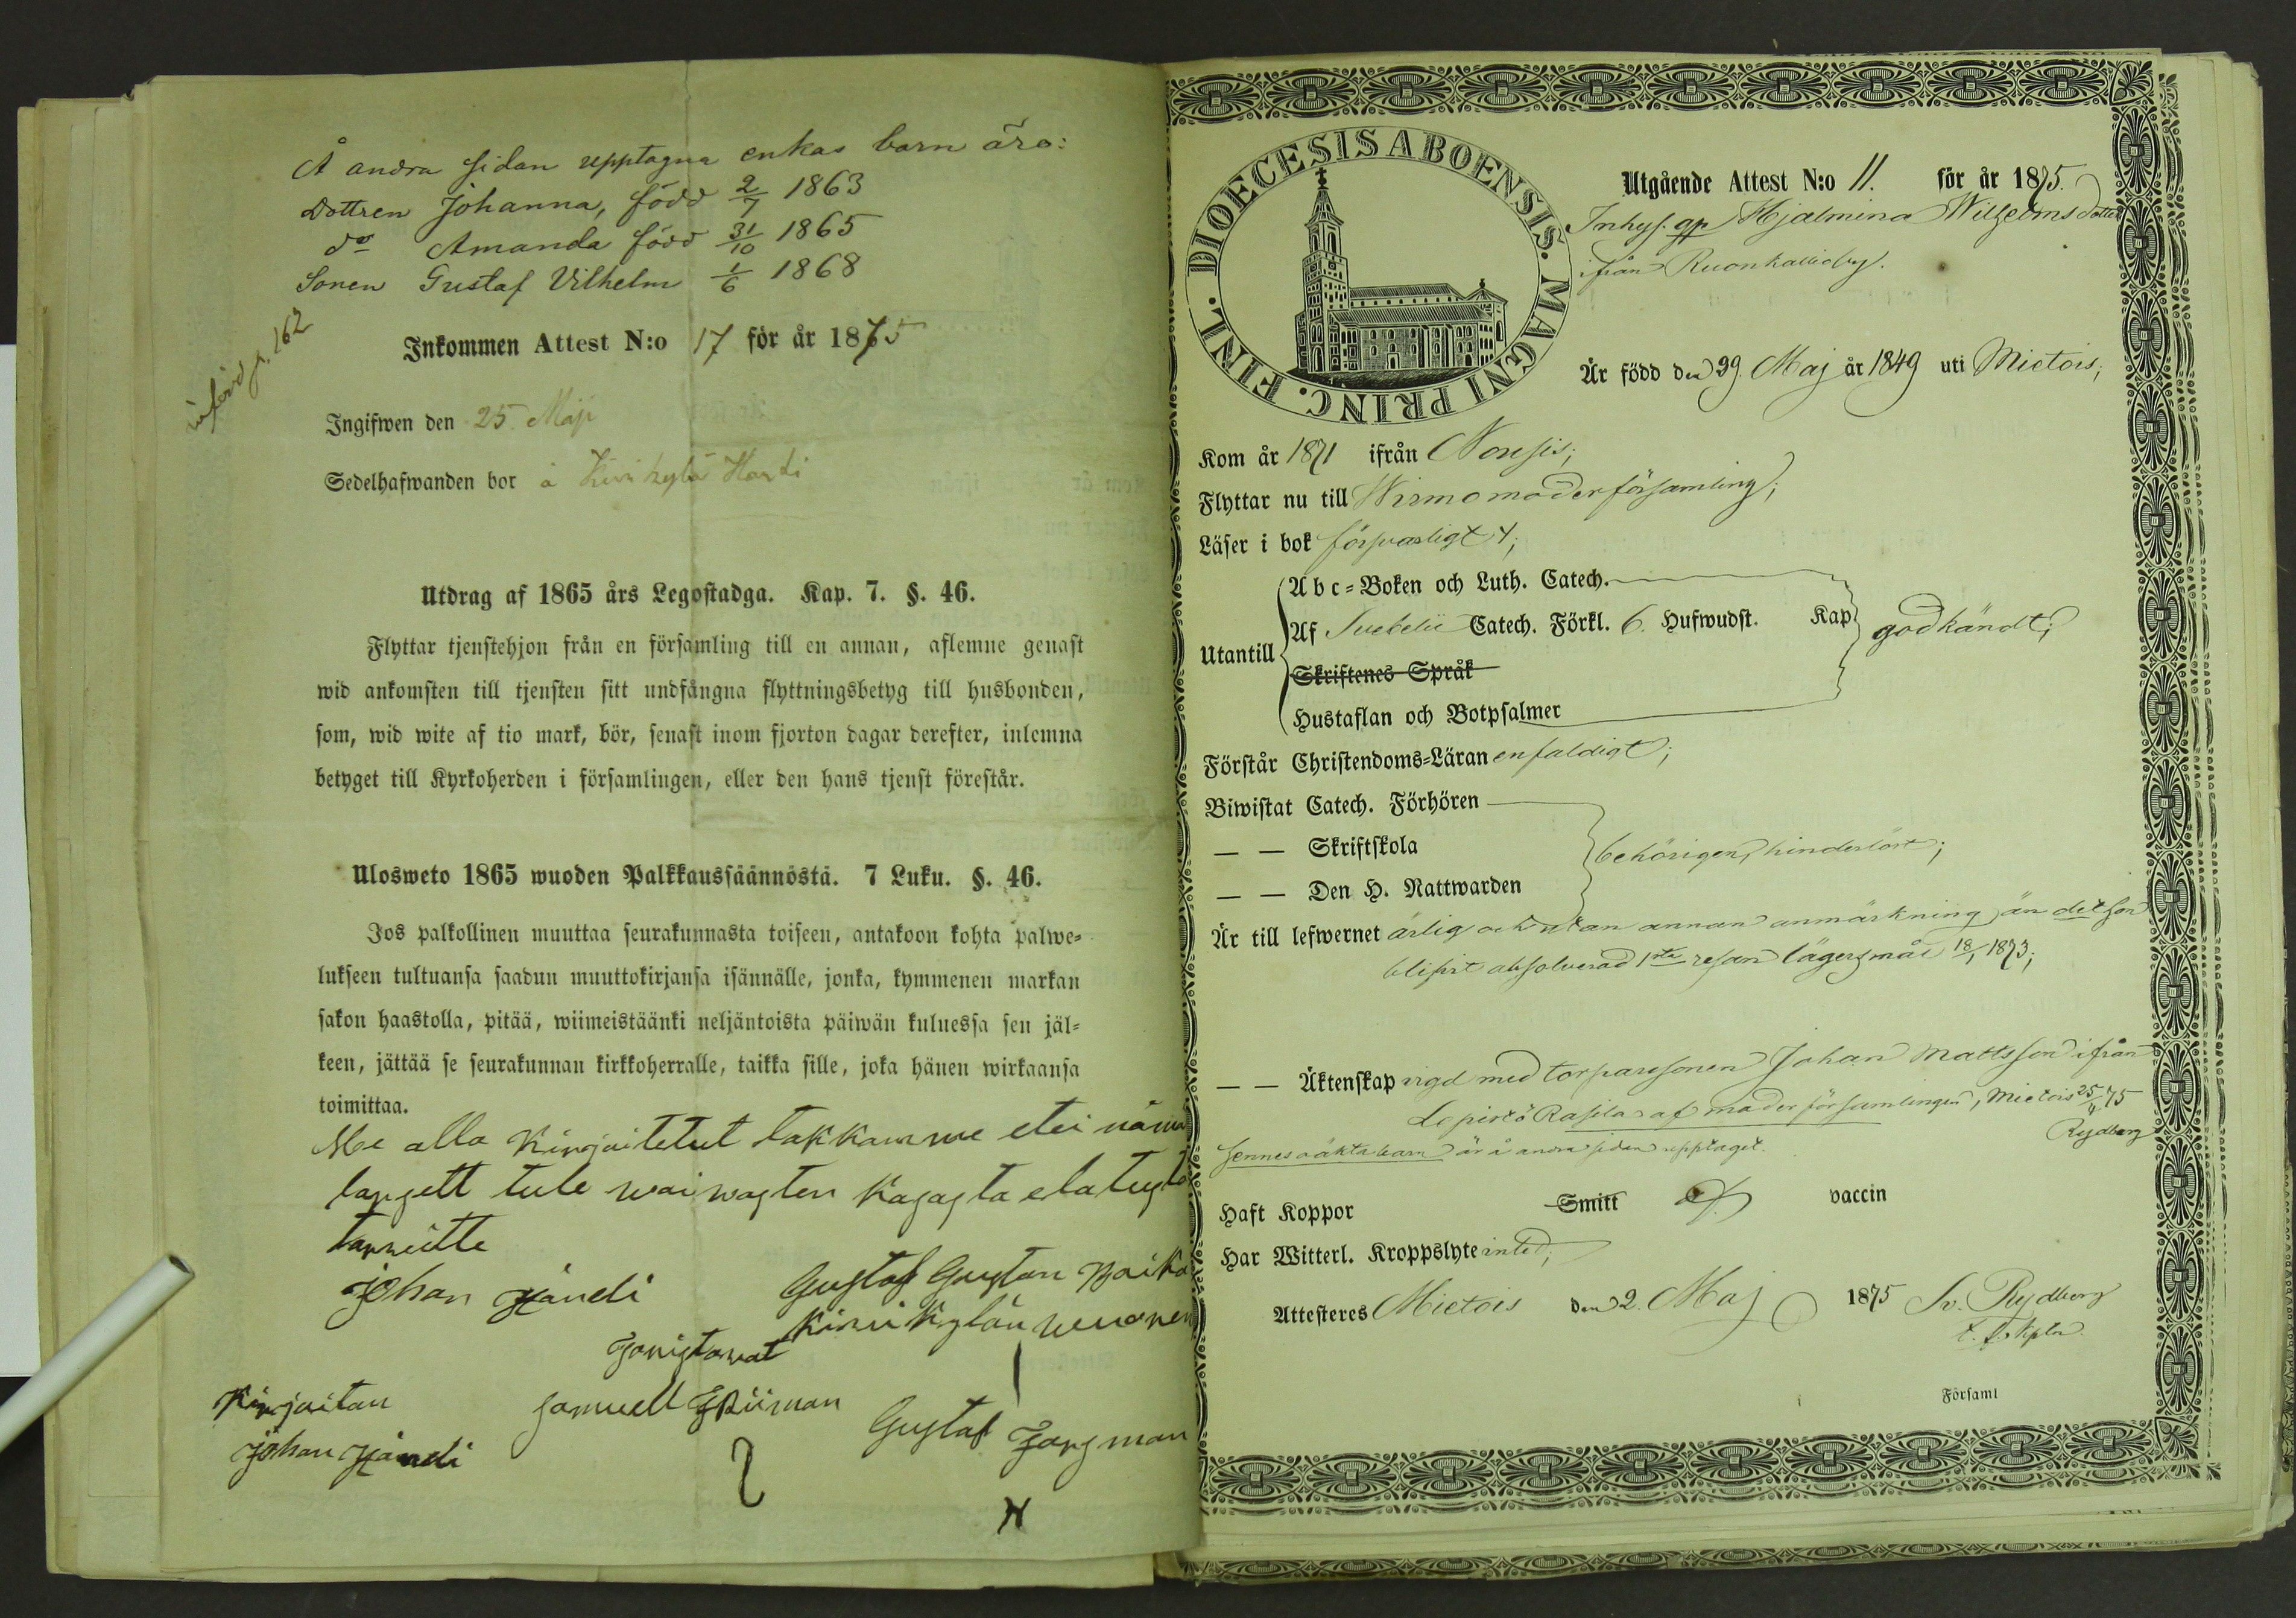 Å andra sidan upptagna enkas barn äro:
Dottren Johanna, född 2/7 1863
do Amanda född 31/10 1865
Sonen Gustaf Vilhelm 1/6 1868
införd p. 162
Inkommen Attest N:o 17 för år 1875
Ingifwen den 25 Maji
Sedelhafwanden bor å Kirikylä
Utdrag af 1865 års Legostadga. Kap. 7. §. 46.
Flyttar tjenstehjon från en församling till en annan, aflemne genast
wid ankomsten till tjensten sitt undfångna flyttningsbetyg till husbonden,
som, wid wite af tio mark, bör, senast inom fjorton dagar derefter, inlemna
betyget till Kyrkoherden i församlingen, eller den hans tjenst förestår.
Ulosweto 1865 wuoden Palkkaussäännöstä. 7 Luku. §. 46.
Jos palkollinen muuttaa seurakunnasta toiseen, antakoon kohta palwe=
lukseen tultuansa saadun muuttokirjansa isännälle, jonka, kymmenen markan
sakon haastolla, pitää, wiimeistäänki neljäntoista päiwän kuluessa sen jäl=
keen, jättää se seurakunnan kirkkoherralle, taikka sille, joka hänen wirkaansa
toimittaa.
Me alla kirjoitetut takkamme etei nämä
lapsett tule waiwasten kassasta elatusta
tarveitte
Johan Händi Gustaf Gustan
kirikylän
Samuell Gustaf
Kirjoitan
Johan Händi
DIOECESIS ABOENSIS. MAGNI PRINC. FINL.
Utgående Attest N:o 11. för år 1875.
Inhys. qp Hjalmina Wilhelmsdotter
ifrån Ruonkallioby.
Är född den 29. Maj år 1849 uti Mietois;
Kom år 1871 ifrån Nousis;
Flyttar nu till Wirmo moderförsamling;
Läser i bok försvarligt;
Utantill
A b c=Boken och Luth. Catech.
Af Svebelii Catech. Förkl. 6. Hufwudst. Kap
godkändt;
Skriftenes Språk
Hustaflan och Botpsalmer
Förstår Christendoms=Läran enfaldigt;
Biwistat Catech. Förhören
— — Skriftskola
behörigen, hinderlöst;
— — Den H. Nattwarden
Är till lefwernet ärlig och utan annan anmärkning än det hon
blifvit absolverad 1sta resan lägersmål 18/1 1873;
— — Äktenskap vigd med torparesonen Johan Mattsson ifrån
Lepistö Rasila af moderförsamlingen, Mietois 25/4 75
Rydberg
Hennes oäkta barn är å andra sidan upptaget.
Haft Koppor Smitt af vaccin
Har Witterl. Kroppslyte intet;
Attesteres Mietois den 2. Maj 1875 Rydberg
Församl